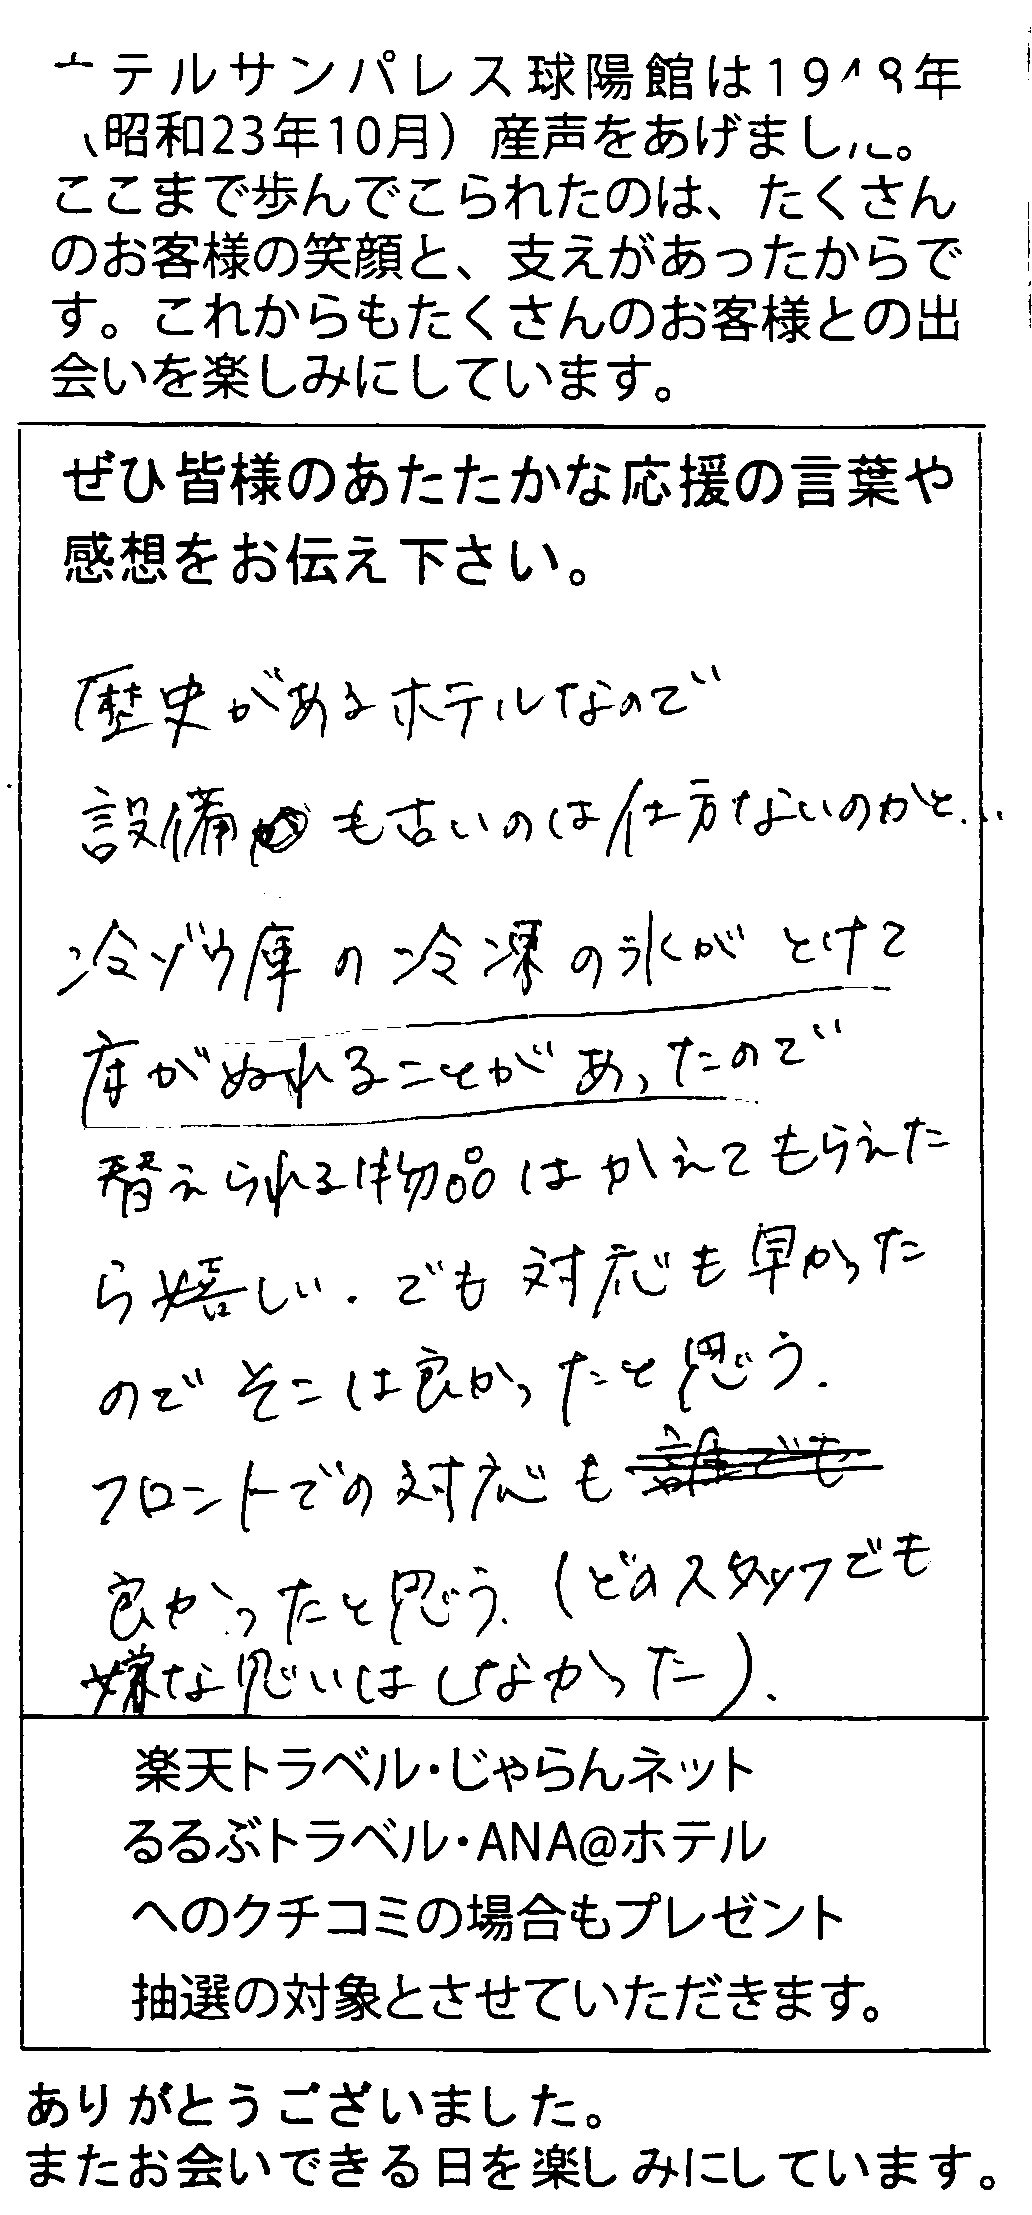 ホテルサンパレス球陽館は1948年
（昭和23年10月）産声をあげました。
ここまで歩んでこられたのは、たくさん
のお客様の笑顔と、支えがあったからで
す。これからもたくさんのお客様との出
会いを楽しみにしています。
ぜひ皆様のあたたかな応援の言葉や
感想をお伝え下さい。
歴史があるホテルなので
設備も古いのは仕方ないのかと...
冷ゾウ庫の冷凍の氷がとけて
床がぬれることがあったので
替えられる物品はかえてもらえた
ら嬉しい.でも対応も早かった
のでそこは良かったと思う.
フロントでの対応も誰でも
良かったと思う.(どのスタッフでも
嫌な思いはしなかった).
楽天トラベル・じゃらんネット
るるぶトラベル・ANA@ホテル
へのクチコミの場合もプレゼント
抽選の対象とさせていただきます。
ありがとうございました。
またお会いできる日を楽しみにしています。